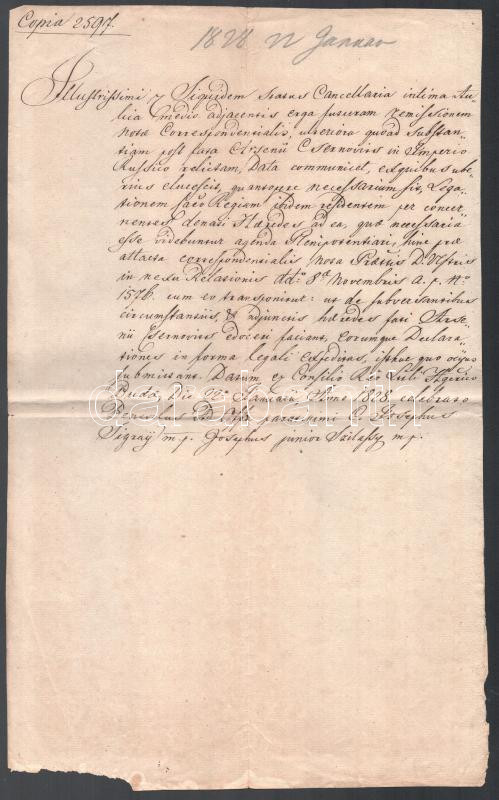 Copia 2597.
1828 22 Januar
Illustrissimi Siquidem Status Cancellaria intima Au-
lica medio adjacentis erga futuram remissionem
Notæ Correspondentialis, ulteriora quoad Substan-
tiam post fata Arsenii Csernovits in Imperio
Russico relictam, Data communicet, ex quibus ube-
rius elucescit, quantopere necessarium sit, Lega-
tionem Sacro Regiam ibidem residentem per concer-
nentes denati Hæredes ad ea, quæ necessaria
esse videbuntur agenda Plenipotentiari, hinc præ-
attacta correspondentialis Nota Prættis D. Vestris
in nexu Relationis ddto 8a Novembris a. p. No
1576. eum in transponitur: ut de subversantibus
circumstantiis, & adjunctis hæredes fati Arse-
nii Csernovits edoceri faciant, eorumque Declara-
tiones in forma legali expeditas, isthuc quo ocyus
submittant. Datum ex Consilio Rio Lltli Hgarico
Budæ, Die 22a Januarii Anno 1828. celebrato
Benevolus ad Off. paratissimi C. Josephus
Sigray mp. Josephus junior Szilassy mp.
darabanth